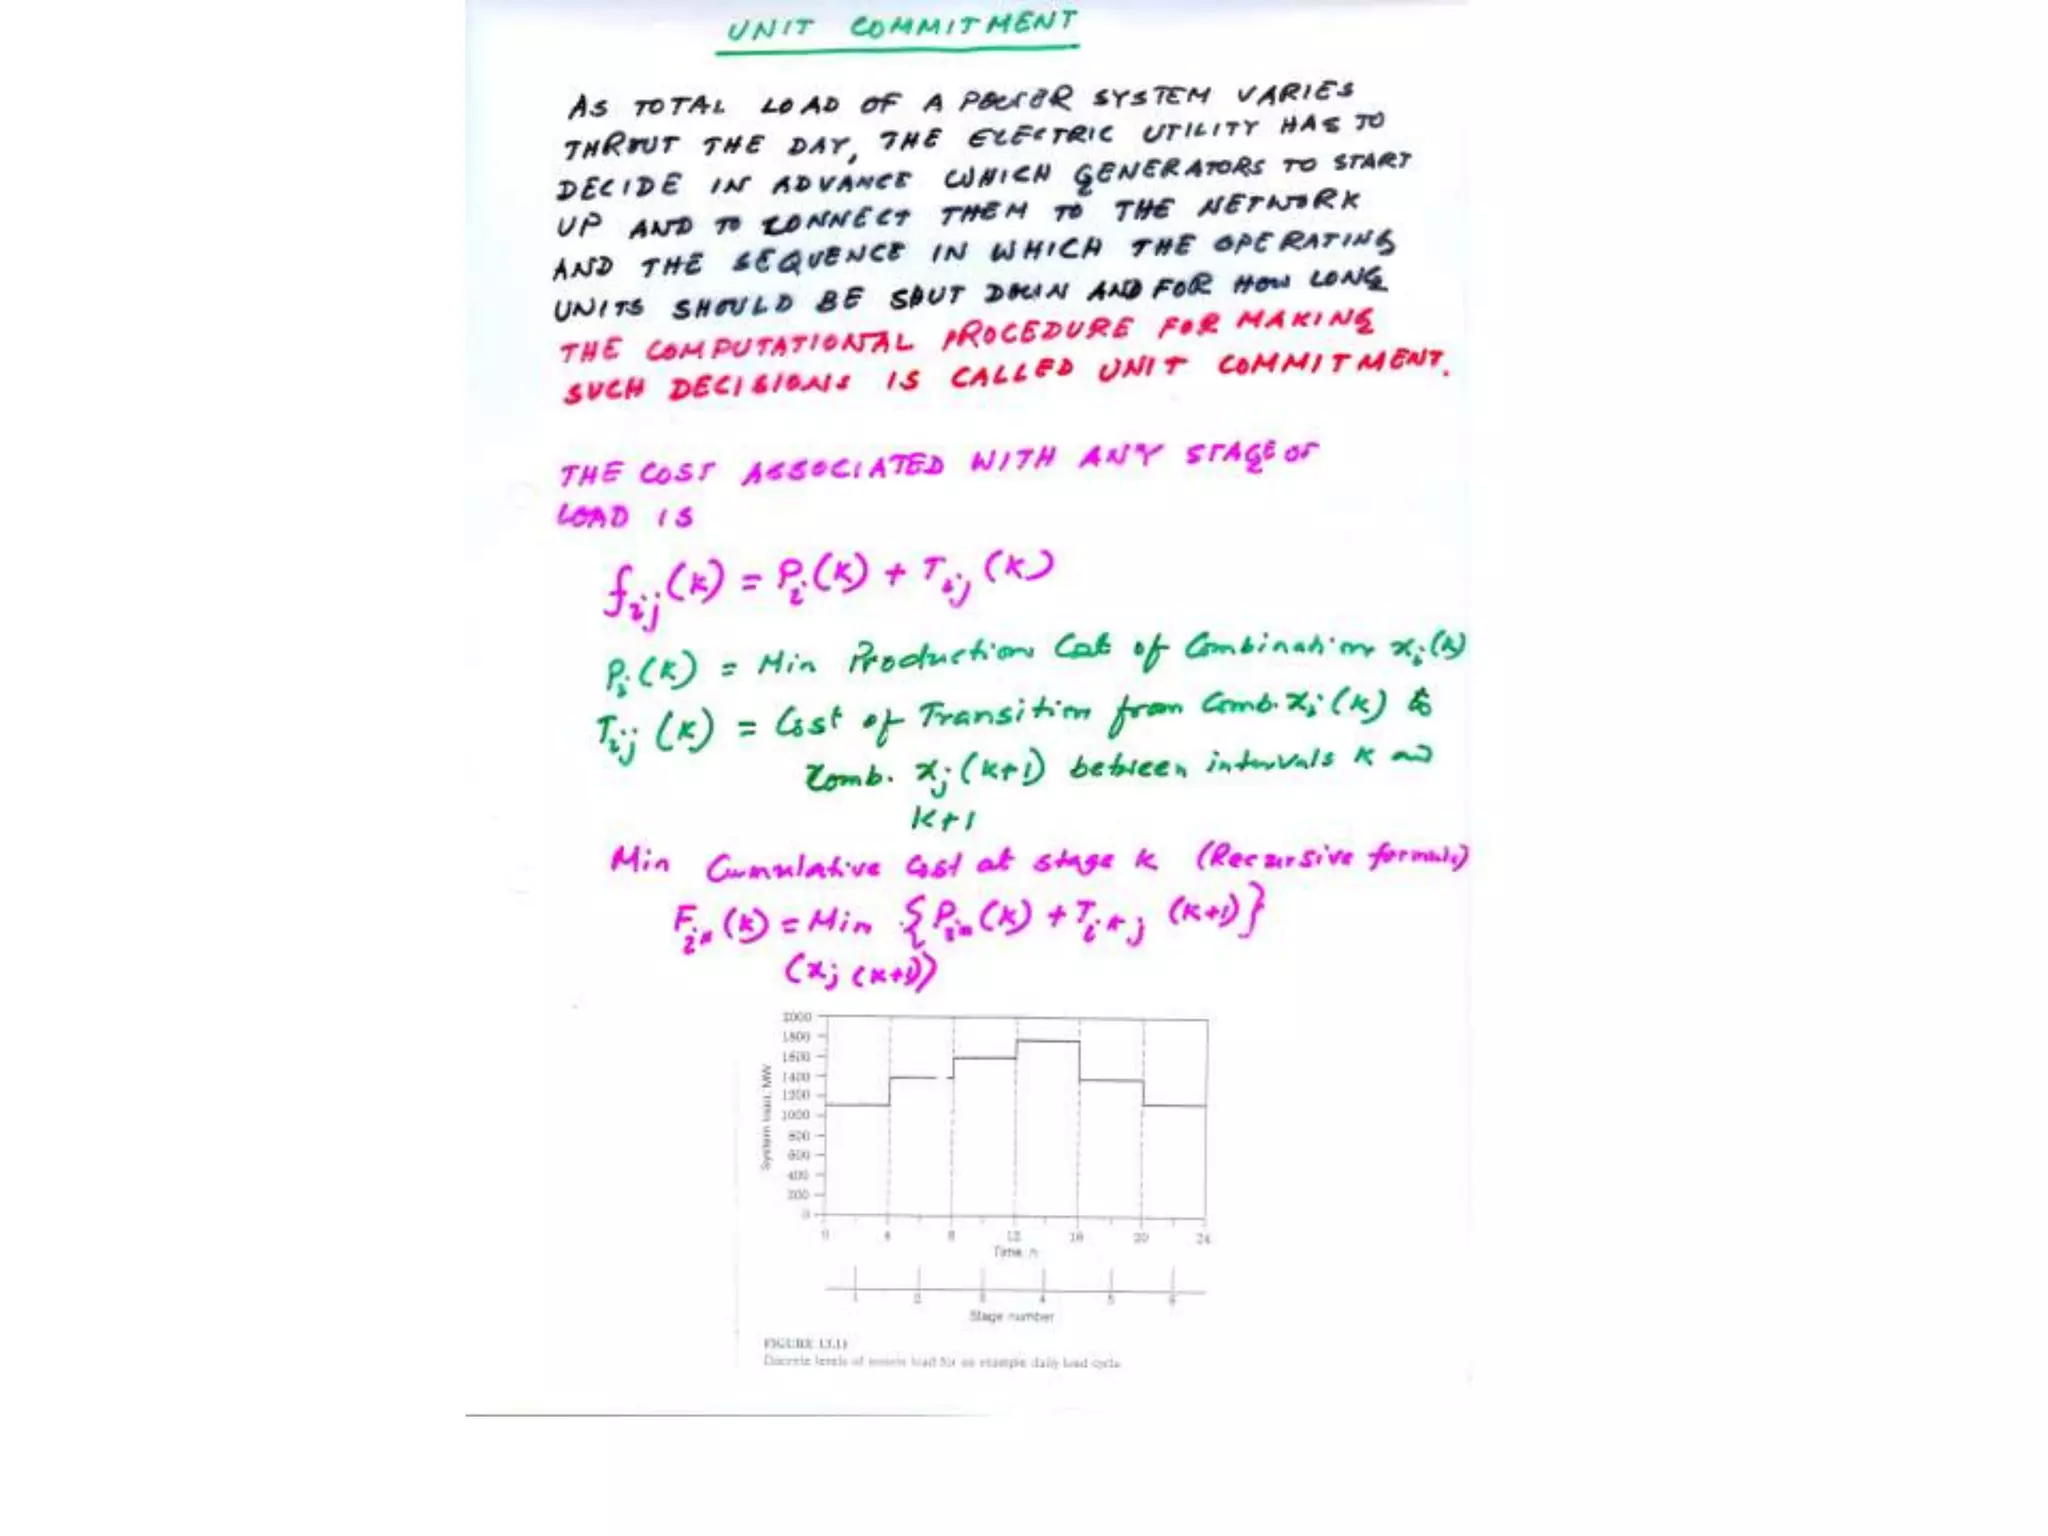 UNIT COMMITMENT
AS TOTAL LOAD OF A POWER SYSTEM VARIES
THROUT THE DAY, THE ELECTRIC UTILITY HAS TO
DECIDE IN ADVANCE WHICH GENERATORS TO START
UP AND TO CONNECT THEM TO THE NETWORK
AND THE SEQUENCE IN WHICH THE OPERATING
UNITS SHOULD BE SHUT DOWN AND FOR HOW LONG
THE COMPUTATIONAL PROCEDURE FOR MAKING
SUCH DECISIONS IS CALLED UNIT COMMITMENT.
THE COST ASSOCIATED WITH ANY STAGE OF
LOAD IS
f_ij(k) = P_i(k) + T_ij(k)
P_i(k) = Min Production Cost of Combination x_i(k)
T_ij(k) = Cost of Transition from Comb. x_i(k) to
Comb. x_j(k+1) between intervals k and
k+1
Min Cumulative Cost at stage k (Recursive formula)
F_i*(k) = Min {P_i*(k) + T_i*j (k+1)}
(x_j(k+1))
2000
1800
1600
1400
1200
1000
800
600
400
200
0
System load, MW
0 4 8 12 16 20 24
Time, h
1 2 3 4 5 6
Stage number
FIGURE 13.1
Discrete levels of system load for an example daily load cycle.